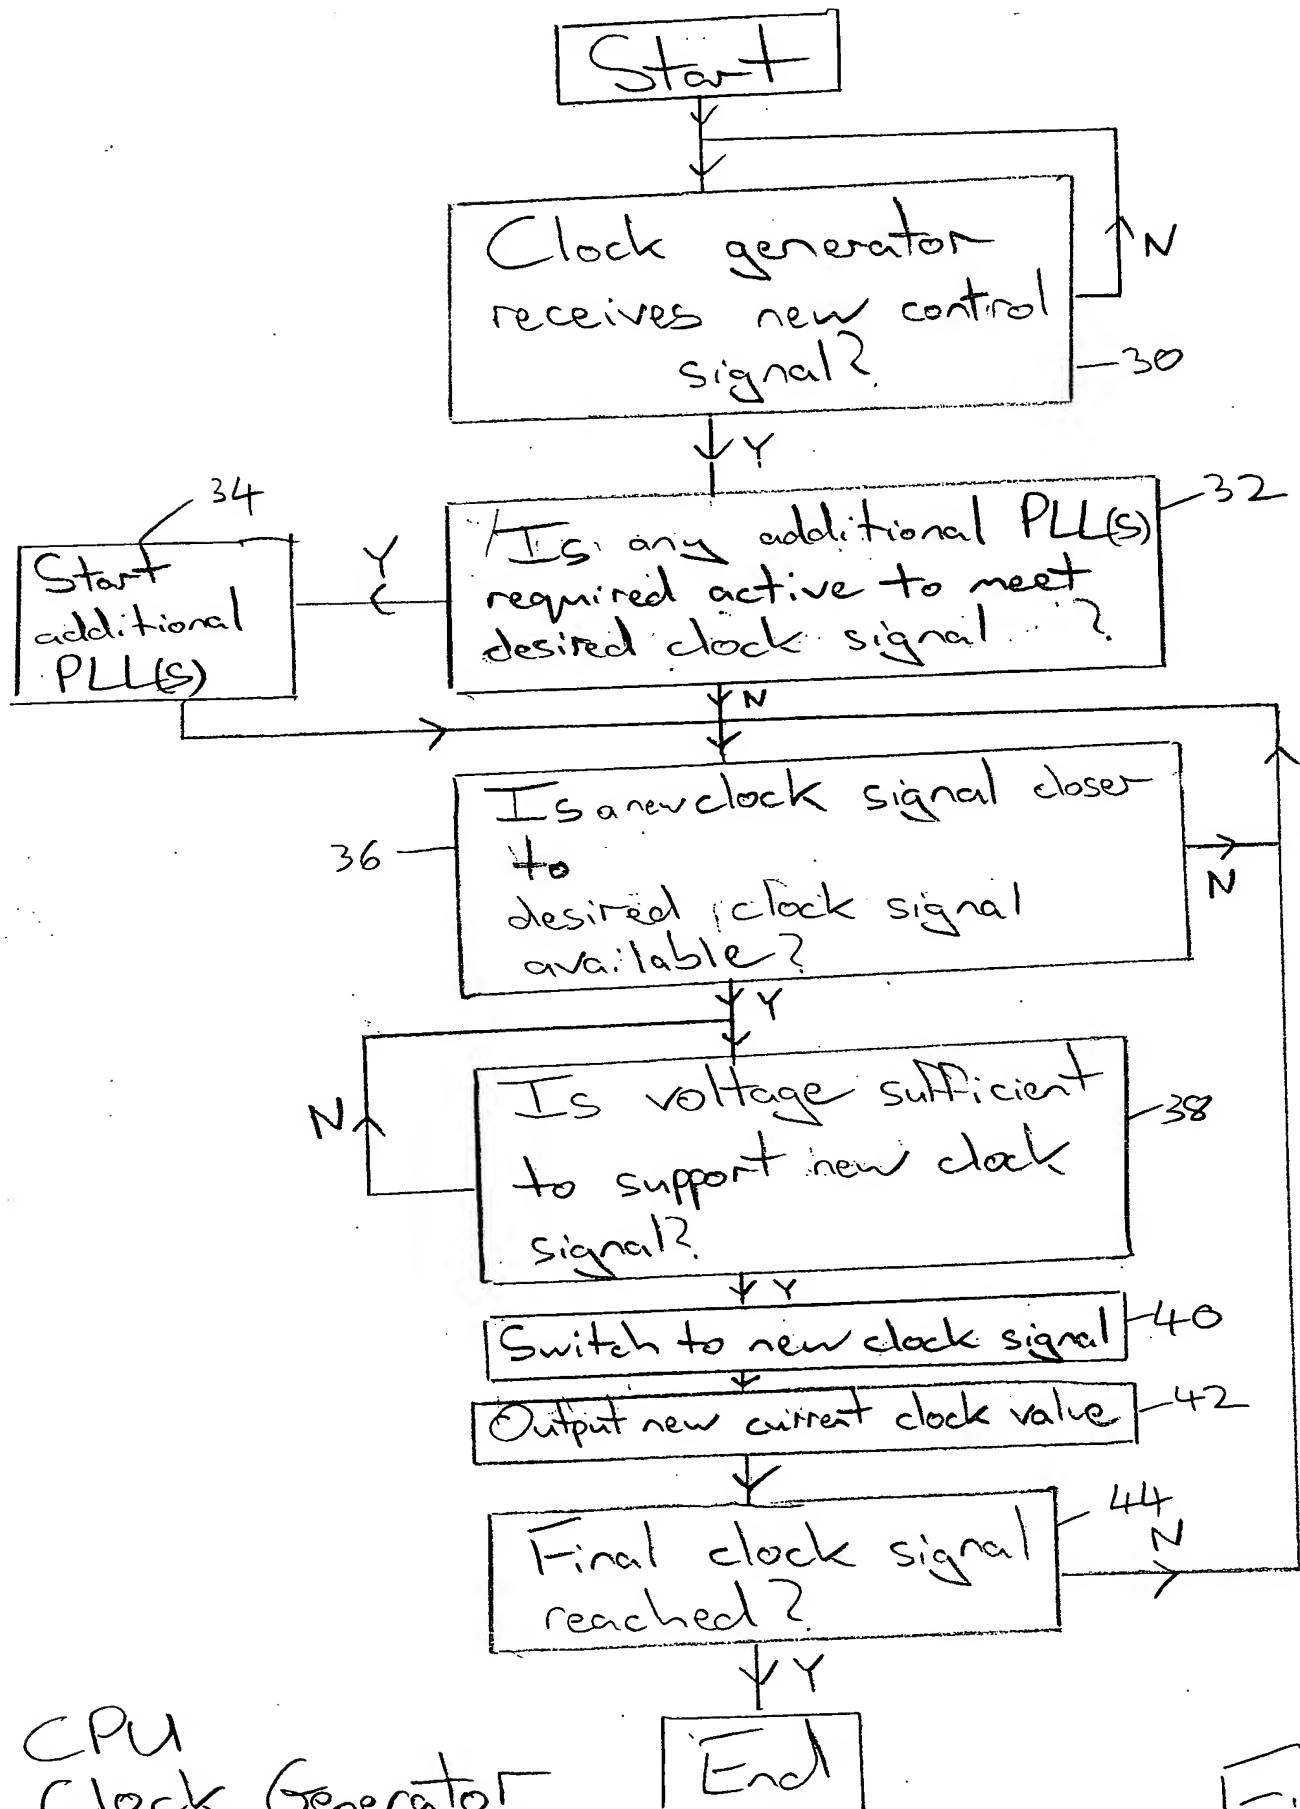 Start
Clock generator
receives new control
signal?
N
30
Y
32
34
Is any additional PLL(s)
required active to meet
desired clock signal ?
Y
Start
additional
PLL(s)
N
Is a new clock signal closer
to
desired clock signal
available?
36
N
Y
Is voltage sufficient
to support new clock
signal?
N
38
Y
Switch to new clock signal
40
Output new current clock value
42
Final clock signal
reached?
44
N
Y
End
CPU
Clock Generator